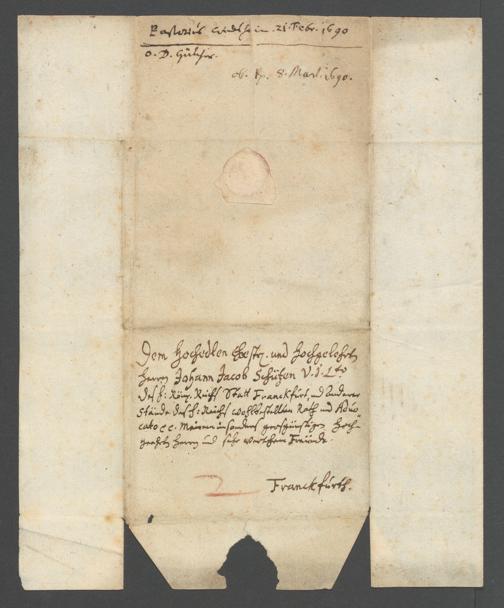 Pastorius Windsheim 21. Febr. 1690
o. D. 
8. Mart. 1690.
Dem HochEdlen Vest. und Hochgelehrten
Herrn Johann Jacob Schützen V. J. Lto
des H: Röm. Reichs Statt Franckfurt, und anderer
Stände des H: Reichs wohlbestellten Rath und Advo
cato &c. Meinem insonders großgünstigen Hoch-
geehrten Herrn und sehr werthem Freunde.
Franckfurth.